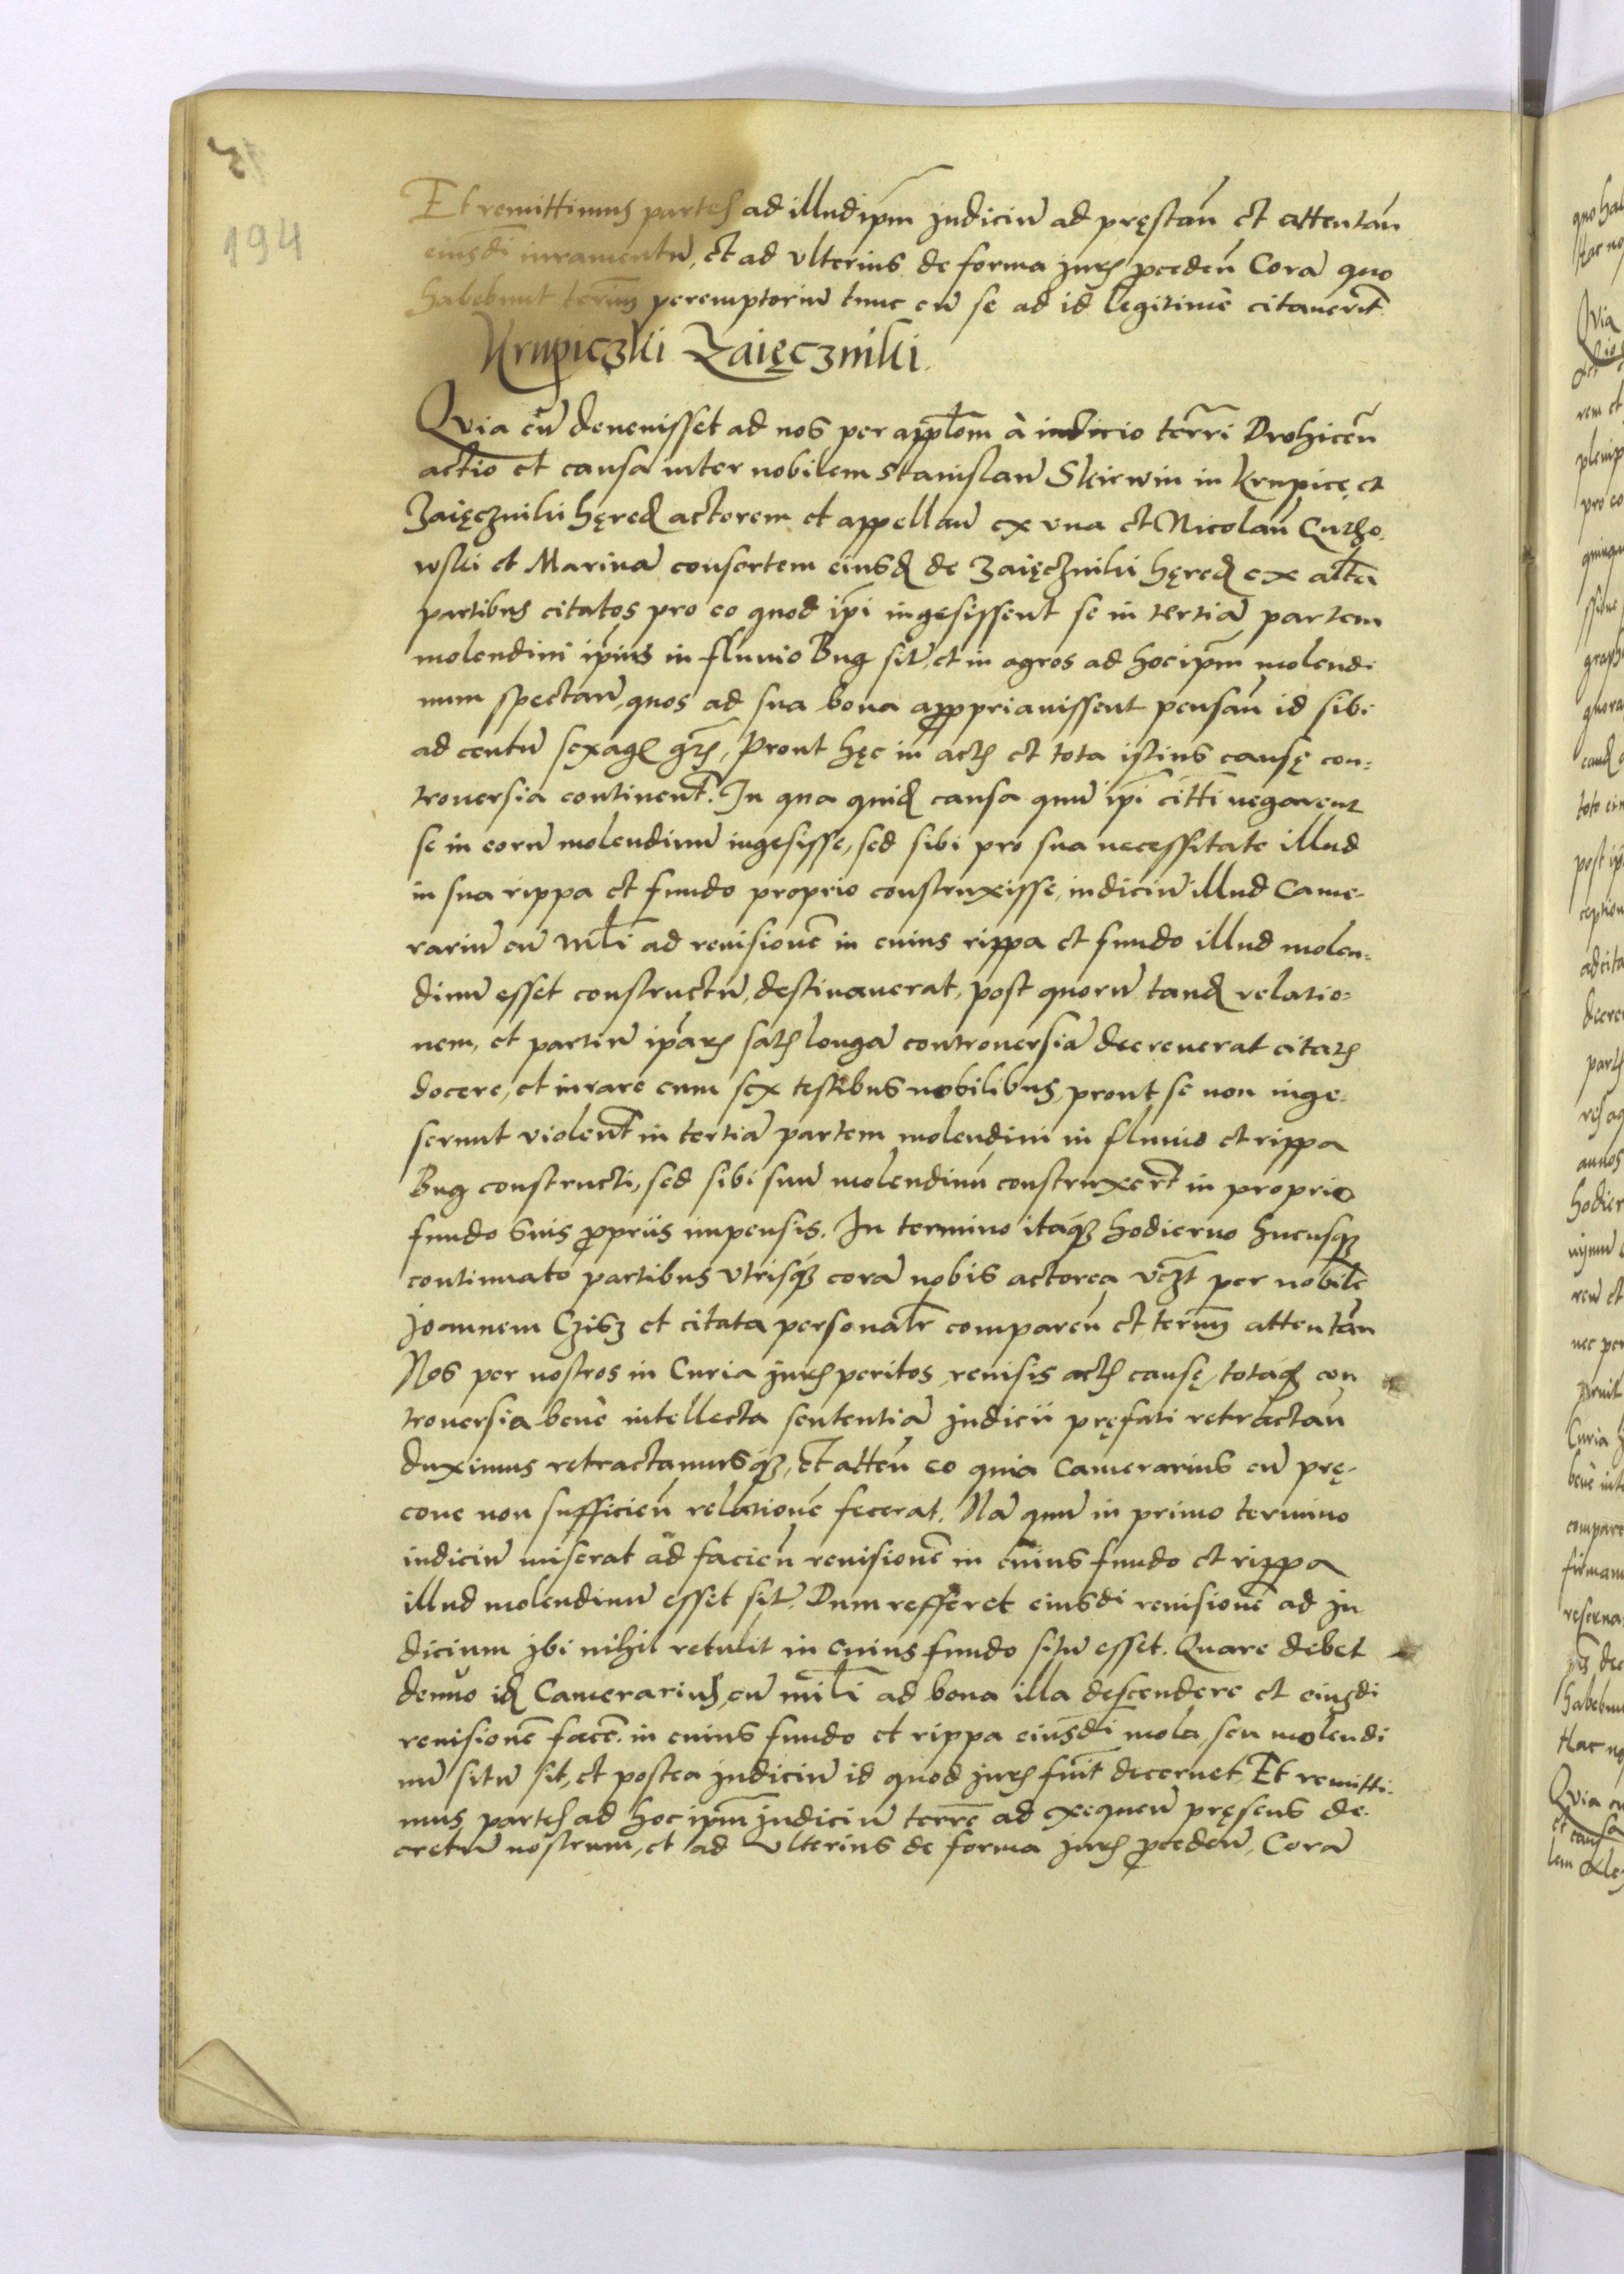 194
Et remittimus partes ad illud ipm̄ Judiciū ad pręstan̄ et attentan̄
eiusdi iuramentū, et ad vlterius de forma Juris pceden̄ Corā quo
habebunt termn̄ peremptoriū tunc cū se ad id legitime citauerīt
Krupiczki Zaięcznikj.
Qvia cū deuenisset ad nos per appłōm à iudicio terrī Drohicen̄
actio et causa inter nobilem Stanislaū Skirwin in Krupice et
Zaięcznikii hęred actorem et appellan̄ ex vna et Nicolaū
wski et Marinā consortem eiusd de Zaięcznikii hęred ex altā
partibus citatos pro eo quod ipī ingesissent se in tertiā partem
molendini ipīus in fluuio Bug sit, et in agros ad hoc ipm̄ molendi
num spectan̄, quos ad sua bona apppriauissent pensan̄ id sibi
ad centū sexag grs, Prout hęc in actis et tota istius causę con=
trouersia continent. In qua quid causa quū ipī cittī negarent
se in eorū molendinū ingesisse, sed sibi pro sua necessitate illud
in sua rippa et fundo proprio construxisse, iudiciū illud Came-
rariū cū mlī ad reuisionē in cuius rippa et fundo illud molen=
dinū esset constructū, destinauerat, post quorū tand relatio=
nem, et partiū ipārs satis longā controuersiā decreuerat citatis
docere, et iurare cum sex testibus nobilibus, prout se non inge-
serunt violent in tertiā partem molendini in fluuio et rippa
Bug constructi, sed sibi suū molendinū construxert in proprio
fundo suis ppriis impensis. In termino itaq3 hodierno hucusq3
continuato partibus vtrisq3 corā nobis actorea vczt per nobilē
Joannem Czisz et citata personalr̄ comparen̄ et termn̄ attentān
Nos per nostros in Curia Juris peritos, reuisis actis causę, totaq3 con
trouersia benè intellecta sententiā Judicii pręfati retractan̄
duximus retractamusq3, et atten̄ eo quia Camerarius cū pręc-
cone non sufficien̄ relationē fecerat. Nā quū in primo termino
iudiciū miserat ad facien̄ reuisionē in cuius fundo et rippa
illud molendinū esset sit. Dum refferet eiusdi reuisionē ad Ju
dicium Jbi nihil retulit in cuius fundo sitū esset. Quare debet
denuo id Camerarius, cū mīlī ad bona illa descendere et eiusdi
reuisionē facē. in cuius fundo et rippa eiusdī mola, seu molendi
nū sitū sit, et postea Judiciū id quod Juris fuīt decernet, Et remitti-
mus partes ad hoc ipm̄ Judiciū terrē ad exequen̄ pręsens de-
cretū nostrum, et ad vlterius de forma Juris pceden̄, Corā